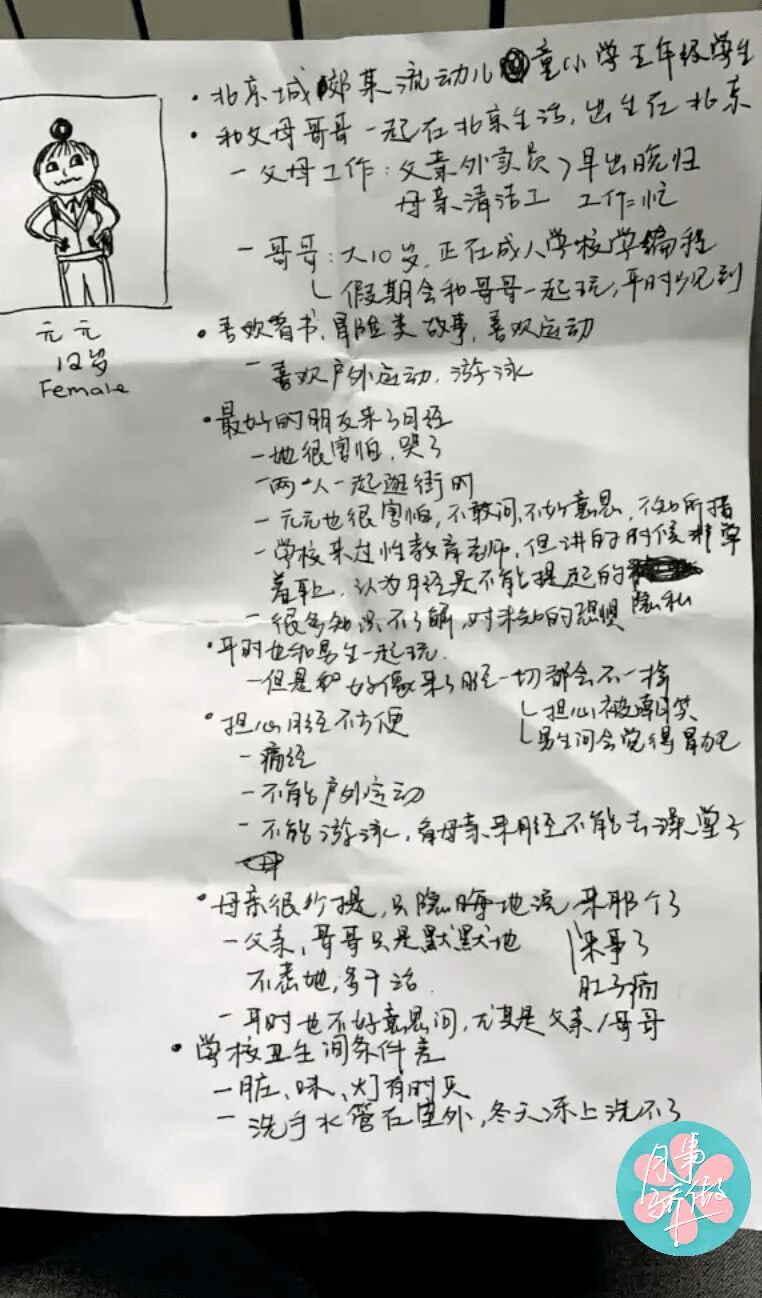 · 北京城郊某流动儿童小学五年级学生
· 和父母哥哥一起在北京生活,出生在北京
- 父母工作:父亲外卖员 早出晚归
母亲清洁工 工作忙
- 哥哥:大10岁,正在成人学校学编程
假期会和哥哥一起玩,平时少见到
元元
12岁
Female
· 喜欢看书、冒险类故事,喜欢运动
- 喜欢户外运动,游泳
· 最好的朋友来了月经
- 她很害怕,哭了
- 两个人一起逛街时
- 元元也很害怕,不敢问,不好意思,不知所措
- 学校来过性教育老师,但讲的时候非常
羞耻,认为月经是不能提起的
隐私
- 很多知识不了解,对未知的恐惧
· 平时也和男生一起玩.
- 但是好像来了月经一切都会不一样
担心被嘲笑
男生间会觉得晦气
· 担心月经不方便
- 痛经
- 不能户外运动
- 不能游泳,母亲来月经不能去澡堂了
· 母亲很少提,只隐晦地说 来那个了
来事了
肚子痛
- 父亲、哥哥只是默默地
不惹她,多干活.
- 平时也不好意思问,尤其是父亲/哥哥
· 学校卫生间条件差
- 脏、味、灯有时灭
- 洗手水管在室外,冬天冻上洗不了
月事骄傲